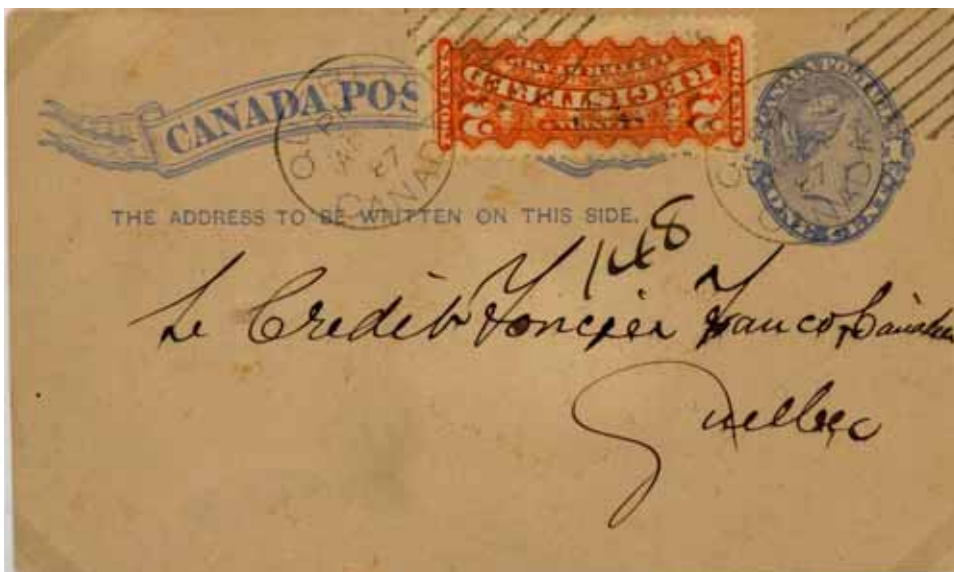 CANADA POS
REGISTERED
2 2
CANADA POST CARD
ONE CENT
QUEBEC
87
CANADA
QUEBEC
87
CANADA
THE ADDRESS TO BE WRITTEN ON THIS SIDE.
148
Le Credit Foncier Franco Canadien
Quebec